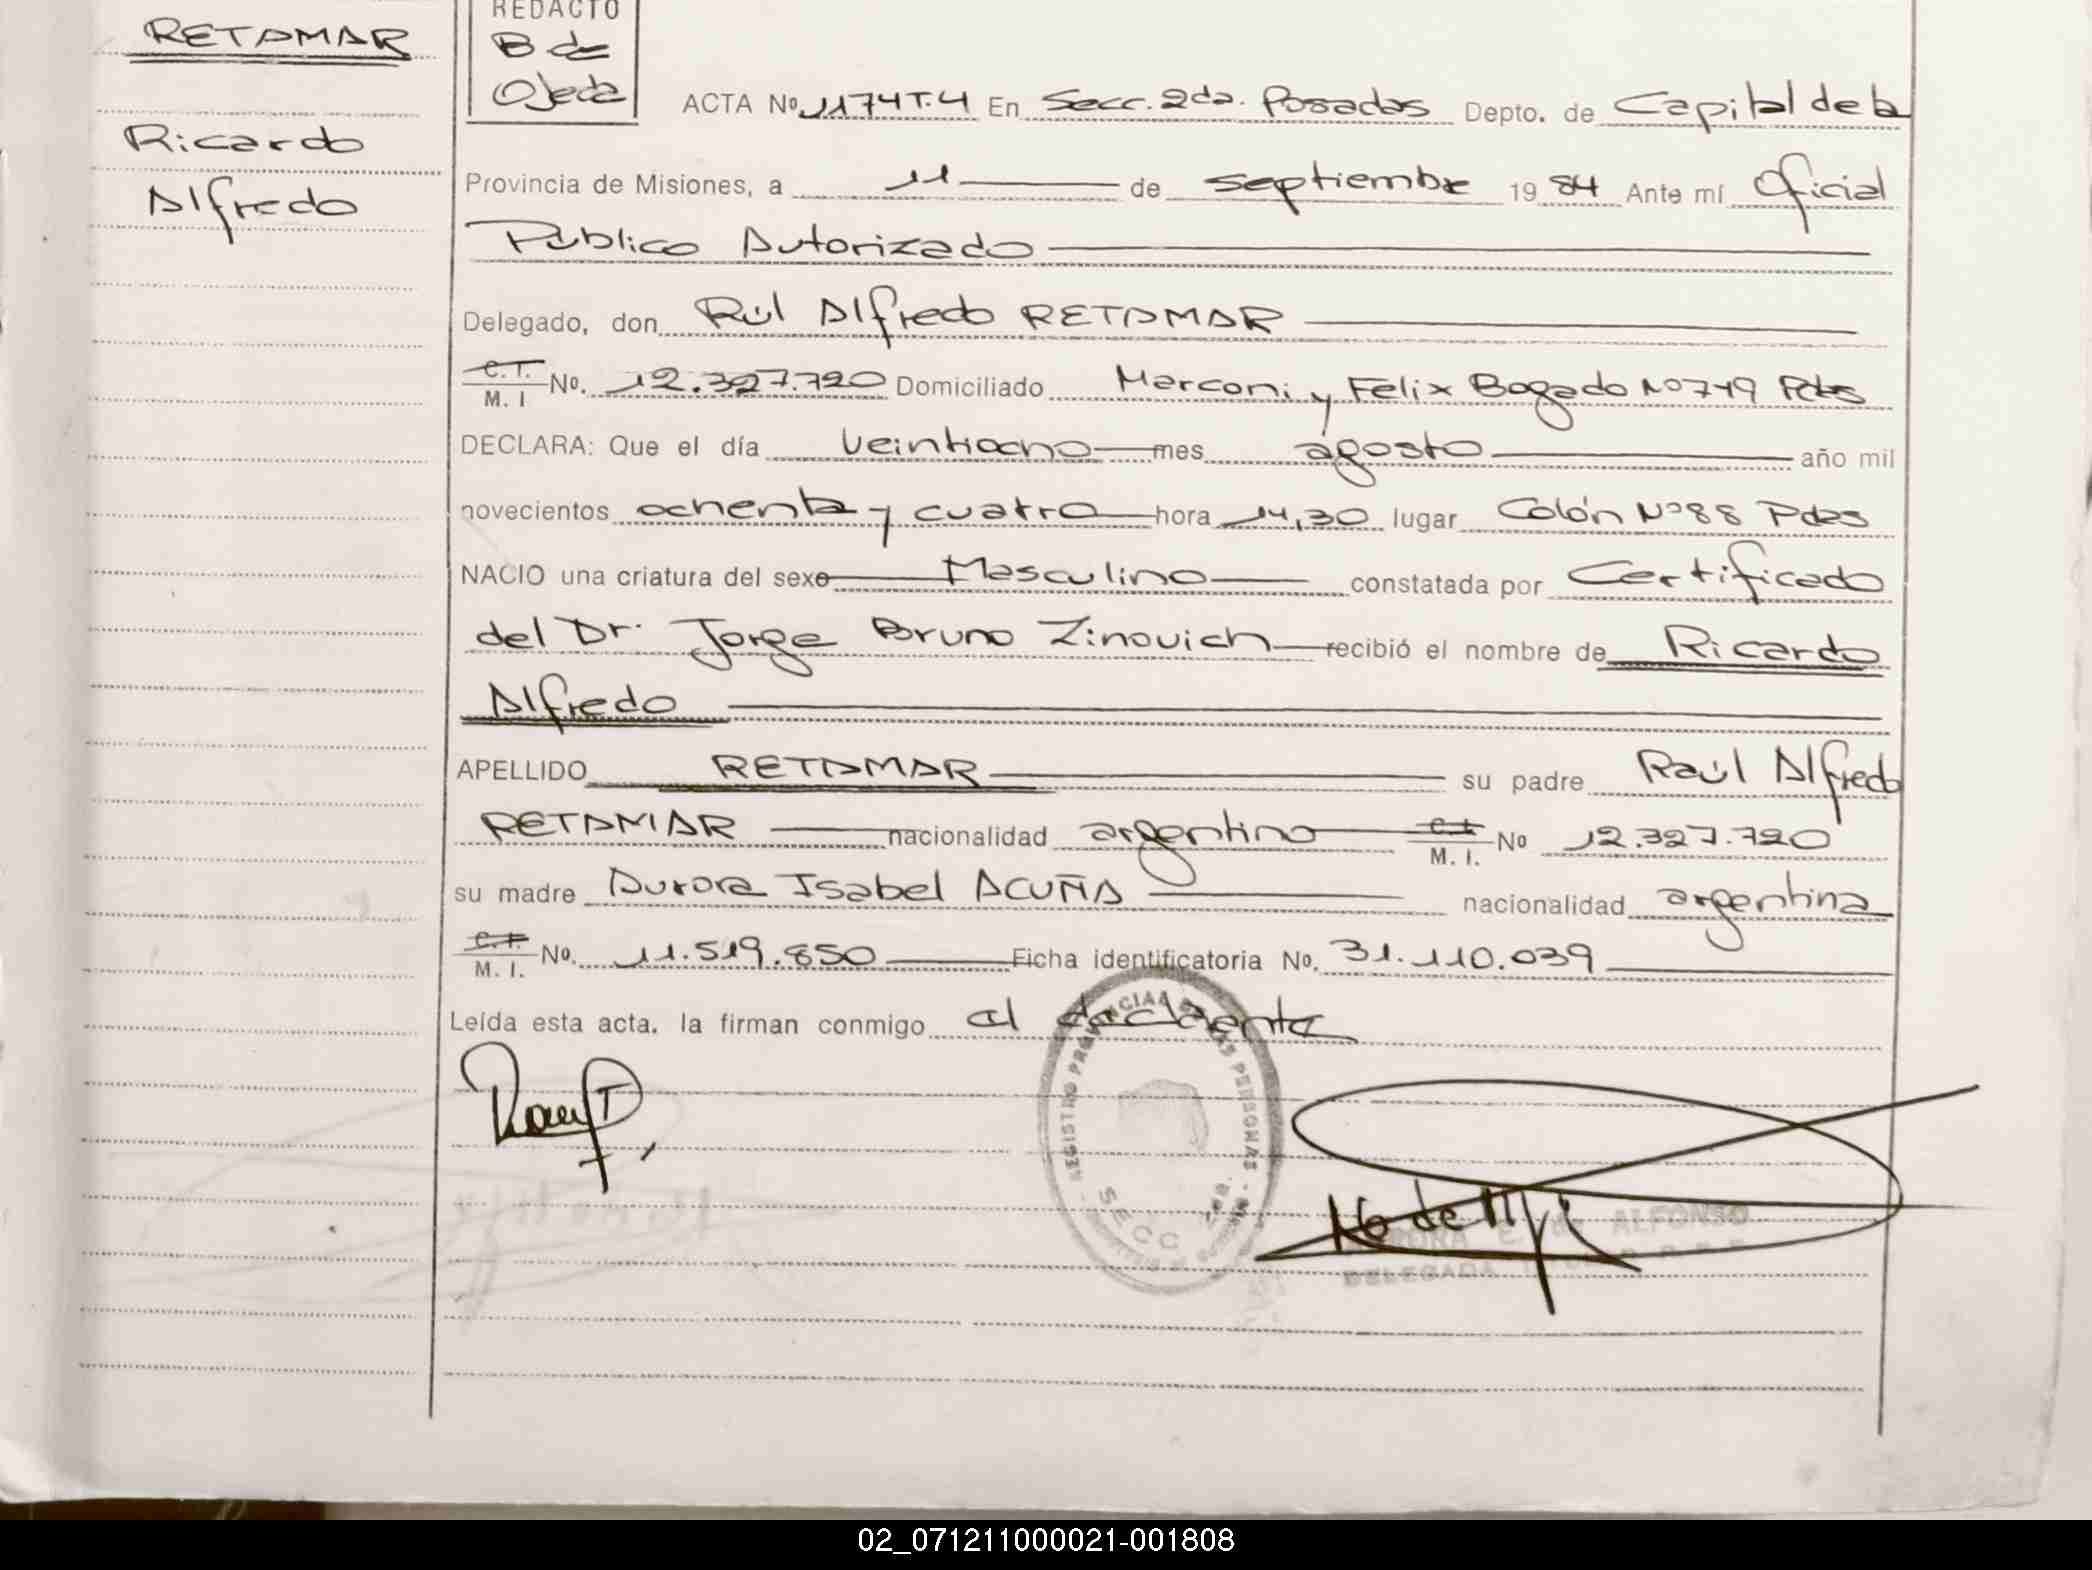 RETAMAR
Ricardo
Alfredo
REDACTO
B de
Ojeda
ACTA Nº 1174 T.4 En Secc. 2da. Posadas Depto. de Capital de la
Provincia de Misiones, a 11 de septiembre 1984 Ante mí Oficial
Público Autorizado
Delegado, don Rúl Alfredo RETAMAR
C.I. M. I Nº. 12.327.720 Domiciliado Marconi y Felix Bogado Nº 749 Pdas
DECLARA: Que el día veintiocho mes agosto año mil
novecientos ochenta y cuatro hora 14,30 lugar Colón Nº 88 Pdas
NACIO una criatura del sexo Masculino constatada por Certificado
del Dr. Jorge Bruno Zinovich recibió el nombre de Ricardo
Alfredo
APELLIDO RETAMAR su padre Raúl Alfredo
RETAMAR nacionalidad argentino C.I. M. I. Nº 12.327.720
su madre Aurora Isabel ACUÑA nacionalidad argentina
C.I. M. I. Nº. 11.519.850 Ficha identificatoria Nº. 31.110.039
Leída esta acta, la firman conmigo el declarante
REGISTRO PROVINCIAL DE LAS PERSONAS
SECC 2da.
E. de ALFONSO
DELEGADA
02_071211000021-001808